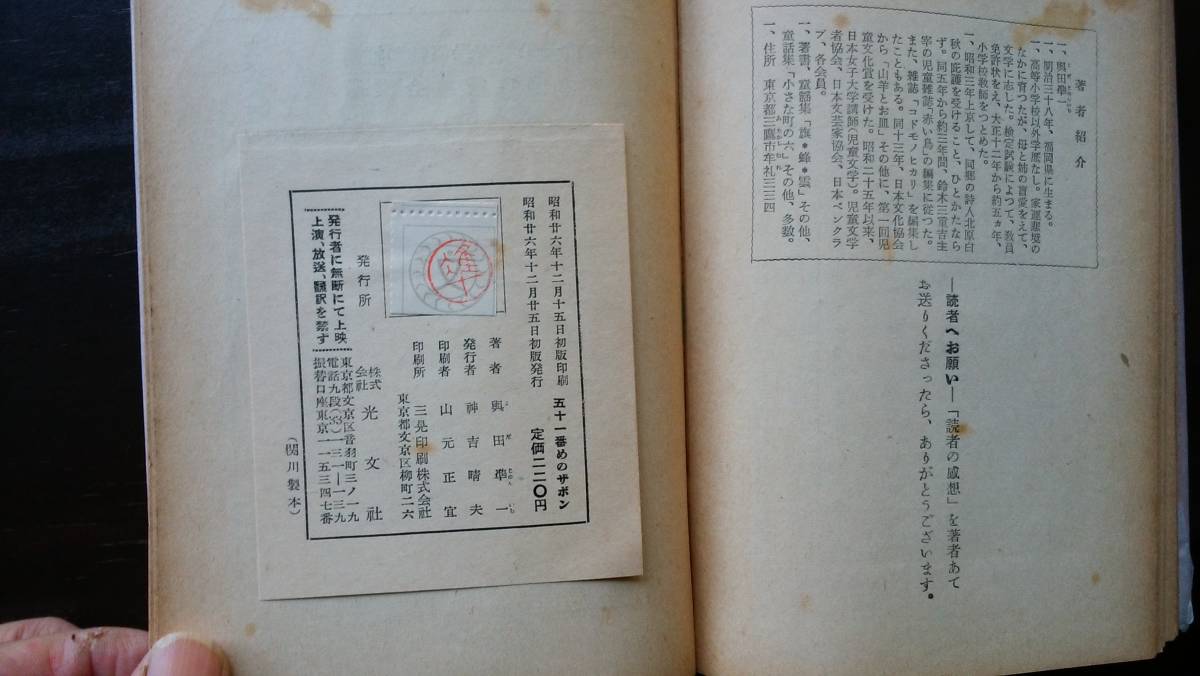 著者紹介
一、與田凖一
一、明治三十八年、福岡県に生まる。
一、高等小学校以外学歴なし。家運悲境の
なかに育つたが、母と姉の盲愛をえて、
文学に志した。検定試験によつて、教員
免許状をえ、大正十二年から約五ヵ年、
小学校教師をつとめた。
一、昭和三年上京して、同郷の詩人北原白
秋の庇護を受けること、ひとかたなら
ず。同五年から約三年間、鈴木三重吉主
宰の児童雑誌「赤い鳥」の編集に従つた。
また、雑誌「コドモノヒカリ」を編集し
たこともある。同十三年、日本文化協会
から「山羊とお皿」その他に、第一回児
童文化賞を受けた。昭和二十五年以来、
日本女子大学講師(児童文学)。児童文学
者協会、日本文芸家協会、日本ペンクラ
ブ、各会員。
一、著書、童謡集「旗*蜂*雲」その他、
童話集「小さな町の六」その他、多数。
一、住所 東京都三鷹市牟礼三三四
―読者へお願い―「読者の感想」を著者あて
お送りくださったら、ありがとうございます。
五十一番めのザボン
定価二二〇円
昭和廿六年十二月十五日初版印刷
昭和廿六年十二月廿五日初版発行
著者 與田凖一
発行者 神吉晴夫
印刷者 山元正宜
印刷所 三晃印刷株式会社
東京都文京区柳町二六
発行所
株式会社 光文社
東京都文京区音羽町三ノ一九
電話九段(33)一三一―一三九
振替口座東京一一五三四七番
発行者に無断にて上映
上演、放送、飜訳を禁ず
(関川製本)